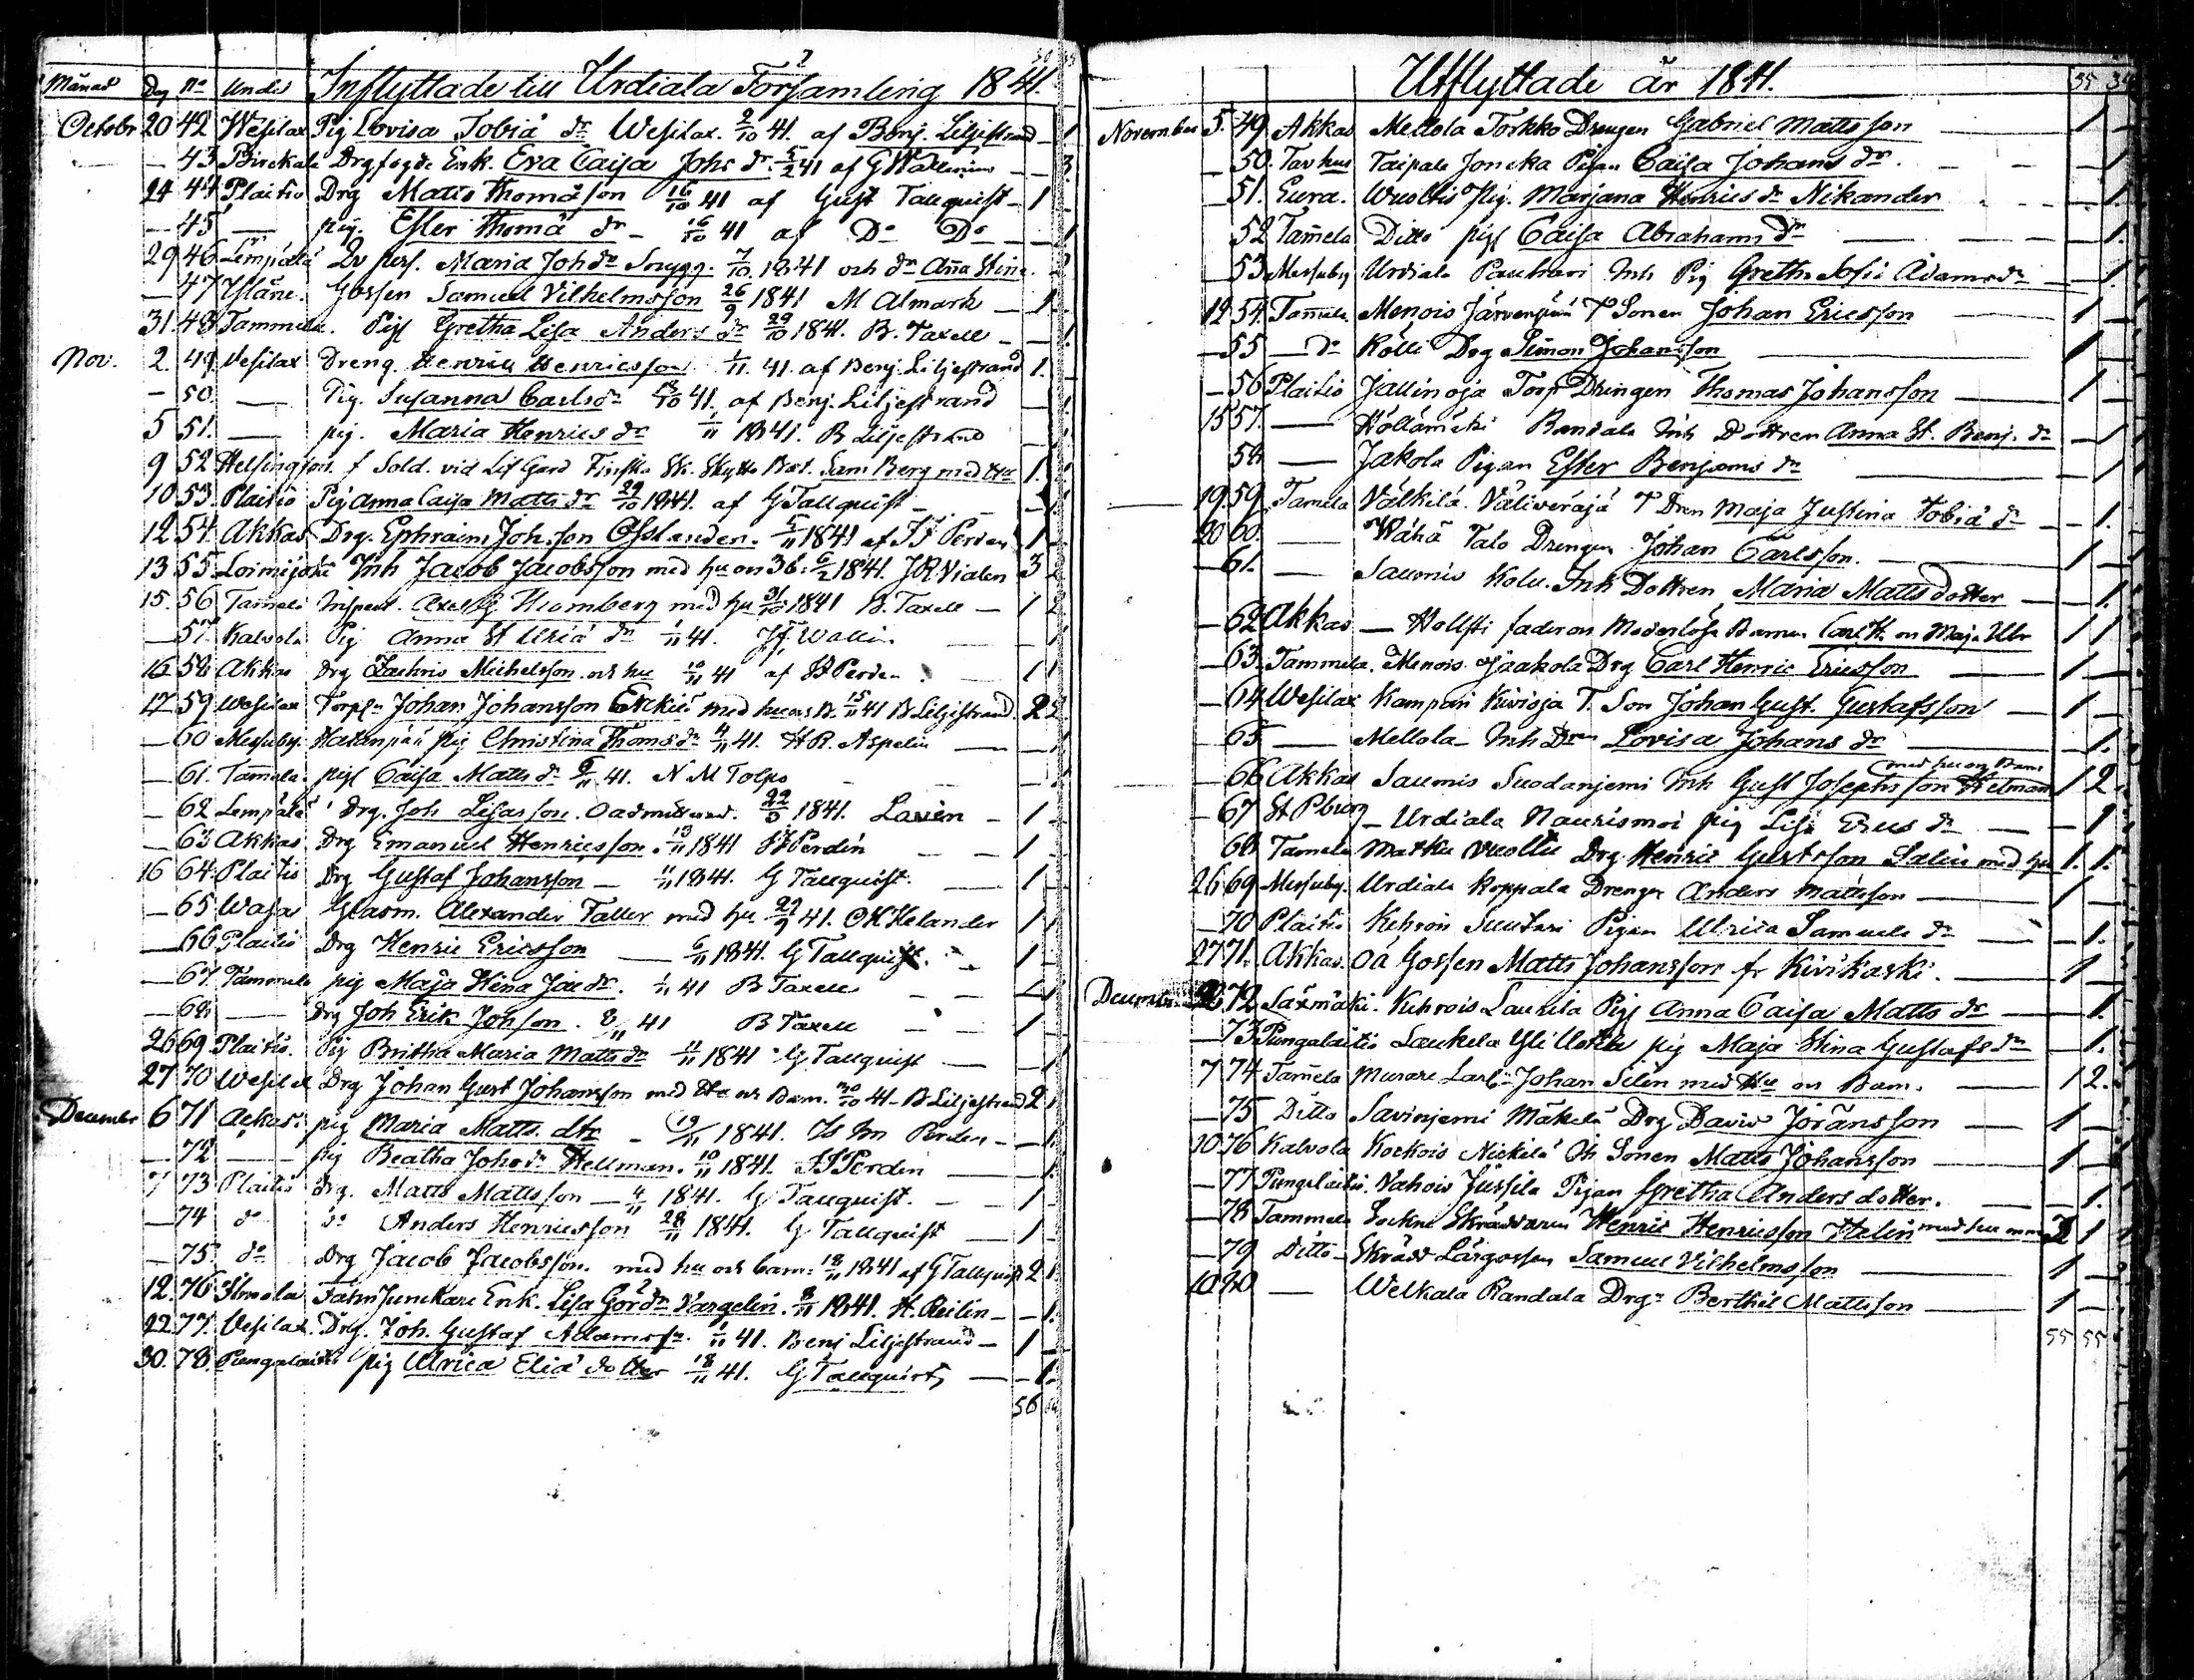 Månad Dag No Under Inflyttade till Urdiala Församling 1841.
Octobr 20 42 Wesilax Pig Lovisa Tobiä dr Wesilax. 2/10 41. af Benj. Liljestrand — 1
— 43 Birckala Drgfogde Enk. Eva Caisa Johs dr 5/2 41 af G Wallenius — 3.
24 44 Plaitis Drg Matts Thomasson 16/10 41 af Gust Tallquist — 1 —
— 45 — pig. Ester Thomä dr — 16/10 41 af Do Do — 1
29 46 Lempälä Maria Joh dr Snygg. 7/10 1841 och dr Anna Stina
— 47 Yläne. Gossen Samuel Vilhelmsson 26/9 1841 M Almark — 1 —
31 48 Tammela. Pigl Gretha Lisa Anders dr 29/10 1841. B. Taxell — 1.
Nov. 2 49 Vesilax Dreng. Henrik Henricsson 1/11. 41. af Benj. Liljestrand 1. —
— 50. — Pig. Susanna Carls dr 13/10 41. af Benj. Liljestrand — 1.
5 51. — pig. Maria Henrics dr 1/11 1841. B Liljestrand — 1.
9 52 Helsingfors. f Sold. vid Lif Gard Finska Sk. Skytte Bat. Sam Berg med Hu 1. 1.
10 53. Plaitis Pig Anna Caisa Matts dr 29/10 1841. af G Tallquist — 1
12 54. Akkas Drg. Ephraim Johsson 5/11 1841 af J J Perden 1 —
13 55 Loimijoki Inh Jacob Jacobsson med hu och 3 b: 6/2 1841. J R Vialen 3 2
15. 56 Tammela Inspect. Axel G. Kromberg med hu 31/10 1841 B. Taxell — 1 2
— 57. Kalvola Pig Anna St Uriä dr 1/11 41. Jf. Wallin 1
16 58 Akkas Drg Zachris Michelsson och hu 10/11 41 af J J Perden. 1 1
17 59 Wesilax Torpf. Johan Johansson Erckilä med hu och B. 15/11 41 B Liljestrand. 2 2
— 60 Messuby. Hatanpää Pig Christina Thoms dr 4/11 41. H R. Aspelin — 1
— 61. Tammela. pigl Caisa Matts dr 9/11 41. N M Tolpo — 1
— 62 Lempälä Drg. Joh Lisasson. Oadmitterad. 22/ 1841. Lavén — 1 —
— 63 Akkas Drg Emanuel Henricsson. 13/11 1841 J J Perdén — 1 —
16 64 Plaitis Drg Gustaf Johansson — 11/11 1841. G Tallquist. — 1 —
— 65 Wasa Glasm. Alexander Faller med hu 29/9 41. O H Helander 1 1
— 66 Plaitis Drg Henric Ericsson — 6/11 1841. G Tallquist. 1 —
— 67. Tammela pig Maja Stina Jac dr. 1/11 41 B Taxell — 1
— 68 — Drg Joh Erik Johsson. 8/11 41 B Taxell — 1 —
26 69 Plaitis. Pig Britha Maria Matts dr 11/11 1841 G Tallquist — 1
27 70 Wesilax Drg Johan Gust Johansson med Hu och Barn. 30/10 41 – B Liljestrand 2 1
December 6 71 Ackas. pig Maria Matts. dtr — 19/11 1841. Perden — 1.
— 72 — pig Beatha Johs dr Hellman. 10/11 1841. J J Perdén — 1.
7 73 Plaitis Drg. Matts Mattsson — 4/11 1841. G Tallquist. — 1 —
— 74 do do Anders Henricsson 28/11 1841. G Tallquist — 1
— 75. do Drg Jacob Jacobsson. med hu och barn: 18/11 1841 af G Tallquist 2 1.
12. 76 Ilmola Enk. Lisa Gör dr Vargelin. 8/11 1841. H. Reilin — — 1.
22 77. Vesilax. Drg. Joh. Gustaf Adamsson. 1/11 41. Benj Liljestrand — 1 —
30. 78. Pungalaitis pig Ulrica Eliä dotter 18/11 41. G Tallquist, — 1.
56
Utflyttade år 1841.
November 5. 49 Akkas Mellola Torkko Drengen Gabriel Mattsson — 1 —
— 50. Tavhus Taipale Joncka Pigan Caisa Johans dr. — 1.
51. Eura. Wuoltis Pig. Marjana Henrics dr Nikander — 1.
52 Tammela Ditto pigl Caisa Abrahams dr — 1.
— 53 Messuby Urdiala Pauhari Inh Pig Greth Sofi Adams dr — 1.
12 54. Tammela. Menois Järvenpää T Sonen Johan Ericsson — 1 —
— 55 — do Kölli Drg Simon Johansson — 1 —
— 56 Plaitis Jallinoja Torp Drengen Thomas Johansson — 1 —
15 57. — Höllämäki Randala Inh Dottren Anna St. Benj. dr — 1
58 — Jakola Pigan Ester Benjams dr — 1
19 59. Tamela Välkilä. Väliveräjä T Dren Maja Justina Tobiä dr — 1.
20 60. — Wähä Talo Drengen Johan Carlsson. — 1 —
— 61. — Saumis Kolu. Inh Dottren Maria Matts dotter — 1.
— 62 Akkas — Hollsti fader och Moderlösa Barnen Carl H. och Maja Ulr 1 1
— 63. Tammela. Menois. Jaakola Drg Carl Henric Ericsson — 1 —
— 64 Wesilax Kampari Kivioja T. Son Johan Gust. Gustafsson — 1 —
— 65 — Mellola Inh Dren Lovisa Johans dr — 1.
— 66 Akkas Saumis Suodanjemi Inh Gust Josephsson Helman med hu och Barn 1 2.
— 67 St Pburg — Urdiala Naurismoi pig Lisa Erics dr — 1
68 Tamela Matku Vuoltu Drg. Henric Gustsson Salin med hu 1. 1.
26 69 Messuby. Urdiala Koppala Drengen Anders Mattsson — 1 —
— 70 Plaitis Kehrois Suutari Pigan Ulrica Samuels dr — 1.
27 71. Akkas. Oä Gossen Matts Johansson fr Kivikaski. — 1 —
December 72 Säxmäki. Kehrois Laurila Pigl Anna Caisa Matts dr — 1.
— 73 Pungalaitis Laukela Yli Uotila pig Maja Stina Gustafs dr — 1.
7 74 Tammela Murare Lärl Johan Silén med Hu och Barn. — 1 2.
— 75 Ditto Savinjemi Mäkelä Drg David Jöransson — 1 —
10 76 Kalvola Kockois Nickilä Sonen Matts Johansson — 1 —
— 77 Pungalaitis. Vahois Jussila Pigan Gretha Anders dotter. — 1.
— 78 Tammela Sockne Skräddaren Henric Henricsson Helin med hu 2 1
— 79 Ditto — Skrädd Lärgossen Samuel Vilhelmsson — 1 —
10 80 — Welkala Randala Drgn Berthil Mattsson — 1 —
55 55